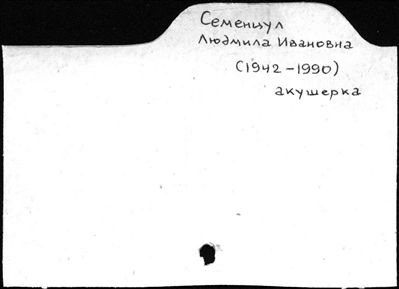 Семенцул
Людмила Ивановна
(1942-1990)
акушерка